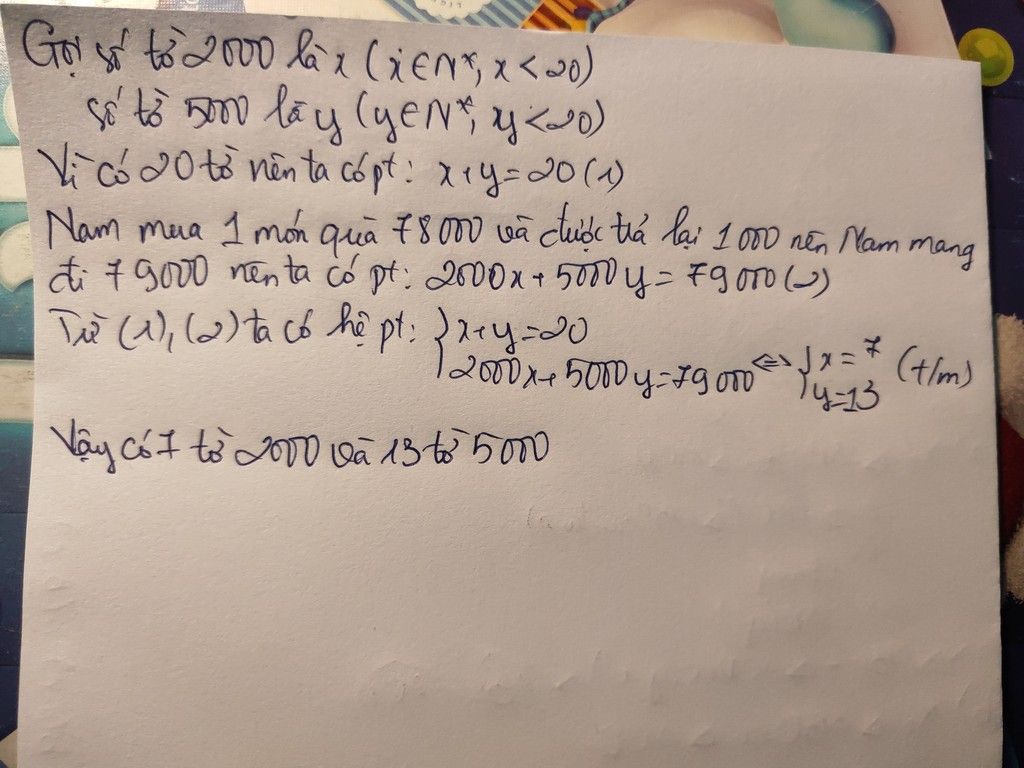 Gọi số tờ 2000 là x (x∈N*, x<20)
số tờ 5000 là y (y∈N*, y<20)
Vì có 20 tờ nên ta có pt: x+y=20 (1)
Nam mua 1 món quà 78000 và được trả lại 1000 nên Nam mang
đi 79000 nên ta có pt: 2000x+5000y=79000 (2)
Từ (1),(2) ta có hệ pt: {x+y=20
2000x+5000y=79000 <=> {x=7
y=13 (t/m)
Vậy có 7 tờ 2000 và 13 tờ 5000